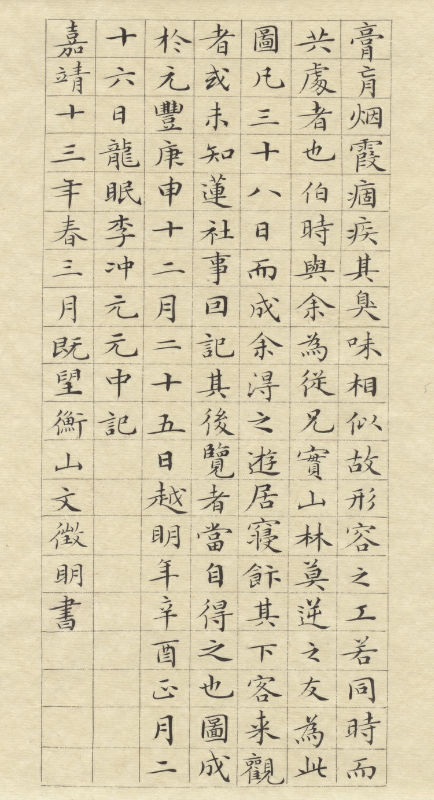 膏肓烟霞痼疾其臭味相似故形容之工若同時而
共處者也伯時與余為從兄實山林莫逆之友為此
圖凡三十八日而成余淂之遊居寢飰其下客来觀
者或未知蓮社事因記其後覽者當自得之也圖成
於元豐庚申十二月二十五日越明年辛酉正月二
十六日龍眠李冲元元中記
嘉靖十三年春三月既望衡山文徵明書